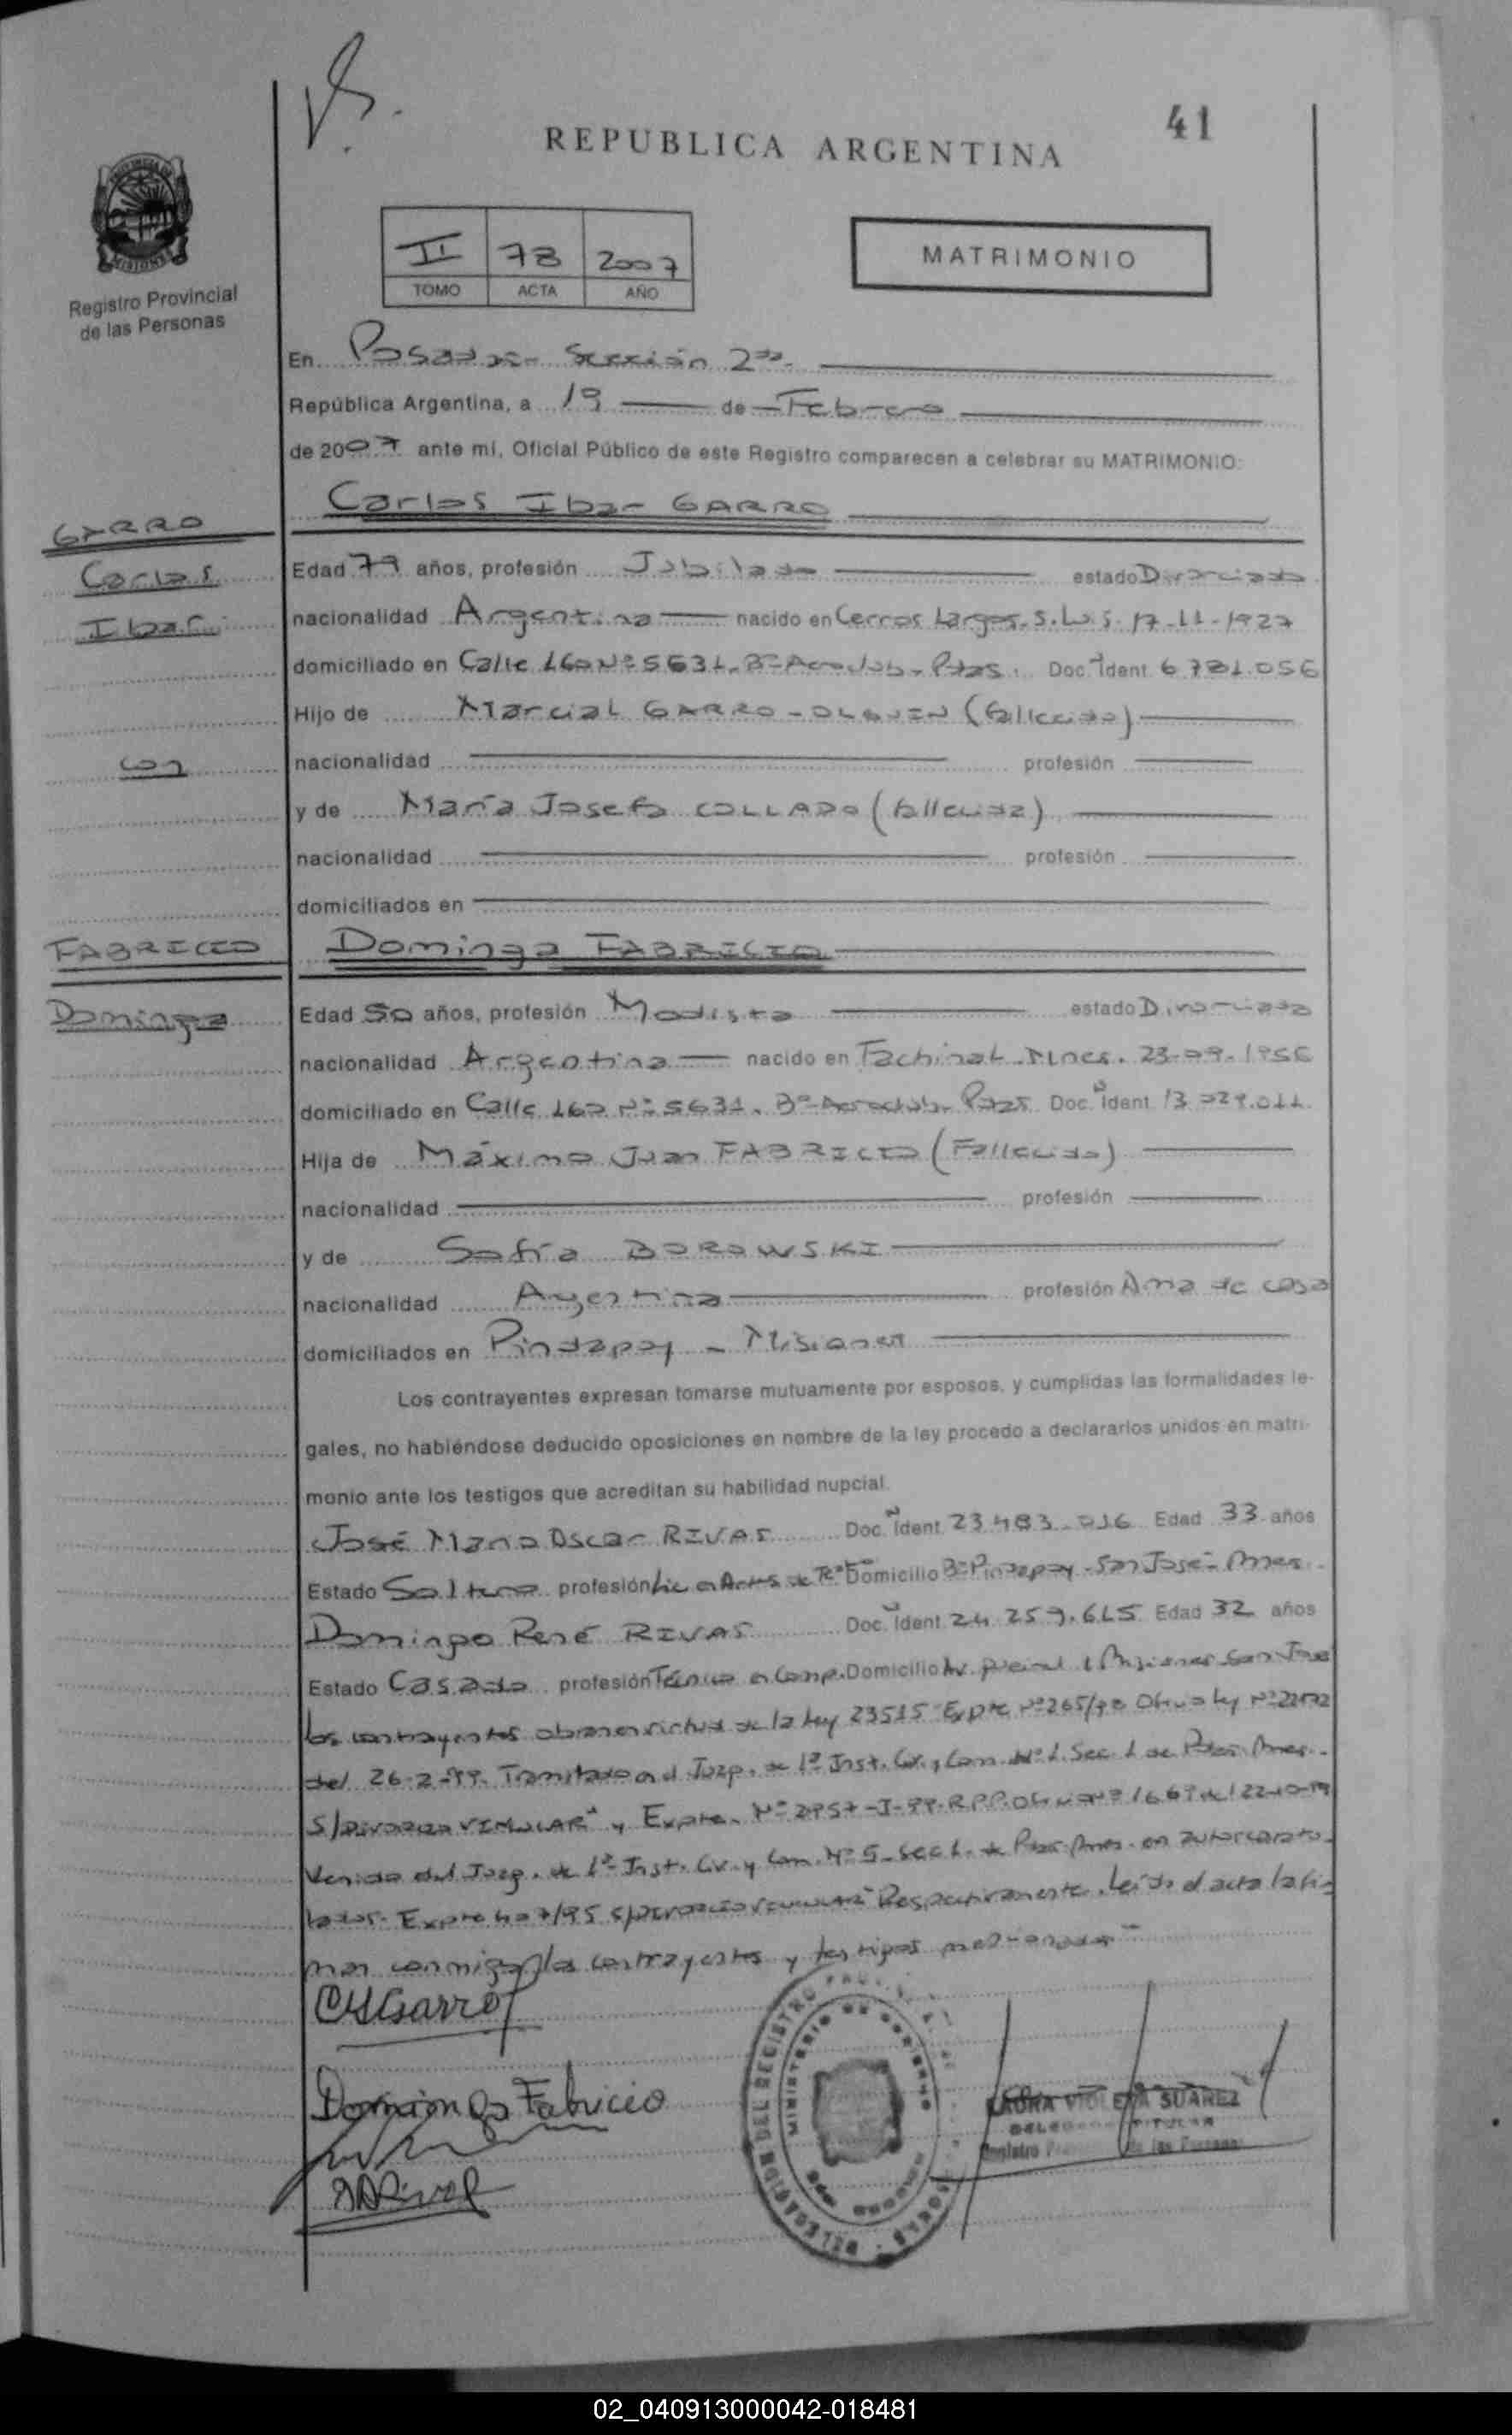 41
REPUBLICA ARGENTINA
PROVINCIA DE MISIONES
Registro Provincial
de las Personas
II 78 2007
TOMO ACTA AÑO
MATRIMONIO
En Posadas - Sección 2da.
República Argentina, a 19 de Febrero
de 2007 ante mí, Oficial Público de este Registro comparecen a celebrar su MATRIMONIO:
GARRO
Carlos
Ibar
con
Carlos Ibar GARRO
Edad 79 años, profesión Jubilado estado Divorciado
nacionalidad Argentina nacido en Cerros Largos. S. Luis 17-11-1927
domiciliado en Calle 160 Nº 5631. Bº Aeroclub - Pdas. Doc. Ident. 6.781.056
Hijo de Marcial GARRO - (fallecido)
nacionalidad profesión
y de María Josefa COLLADO (fallecida)
nacionalidad profesión
domiciliados en
FABRICIO
Dominga
Dominga FABRICIO
Edad 50 años, profesión Modista estado Divorciada
nacionalidad Argentina nacido en Fachinal. Mnes. 23-09-1956
domiciliado en Calle 160 Nº 5631. Bº Aeroclub. Pdas. Doc. Ident. 13.029.011
Hija de Máximo Juan FABRICIO (Fallecido)
nacionalidad profesión
y de Sofía BOROWSKI
nacionalidad Argentina profesión Ama de casa
domiciliados en Pindapoy - Misiones
Los contrayentes expresan tomarse mutuamente por esposos, y cumplidas las formalidades le-
gales, no habiéndose deducido oposiciones en nombre de la ley procedo a declararlos unidos en matri-
monio ante los testigos que acreditan su habilidad nupcial.
José Mario Oscar RIVAS Doc. Ident. 23.483.016 Edad 33 años
Estado Soltero profesión Lic. en Artes Domicilio Bº Pindapoy - San José - Mnes.
Domingo René RIVAS Doc. Ident. 24.259.615 Edad 32 años
Estado Casado profesión Técnico en Comp. Domicilio Av. Misiones San José
los contrayentes de la Ley 23515 Expte Nº 265/98 Ley Nº
del 26-2-99. Tramitado en el Juzg. de 1º Inst. Civ. y Com. Nº 1. Sec. 1 de Pdas. Mnes.
S/DIVORCIO VINCULAR" y Expte. Nº R.P.P.
Venido del Juzg. de 1º Inst. Civ. y Com. Nº 5 - Sec. 1. de Pdas. Mnes. en
Expte 407/95 Respectivamente. Leída el acta la fir-
man conmigo los contrayentes y testigos mencionados
CIGarro
Dominga Fabricio
DRRivas
DELEGACION DEL REGISTRO
MINISTERIO DE GOBIERNO
LAURA VIOLETA SUAREZ
DELEGADA TITULAR
Registro Provincial de las Personas
02_040913000042-018481